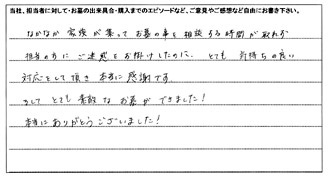 当社、担当者に対して・お墓の出来具合・購入までのエピソードなど、ご意見やご感想など自由にお書き下さい。
なかなか家族が集ってお墓の事を相談する時間が取れず
担当の方にご迷惑をお掛けしたのに、とても気持ちの良い
対応をして頂き本当に感謝です。
そしてとても素敵なお墓ができました!
本当にありがとうございました!